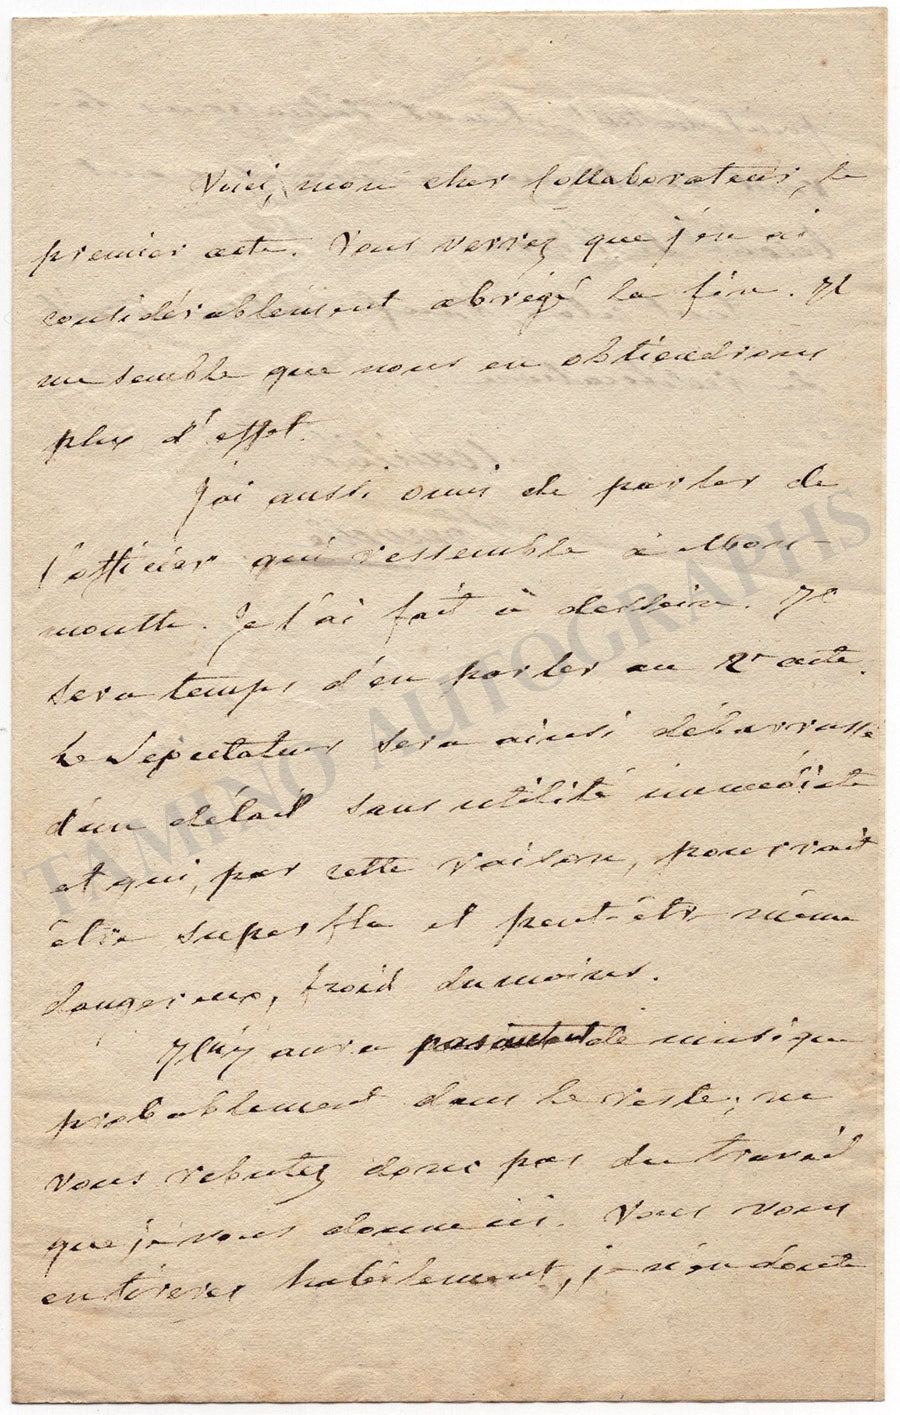 Voici, mon cher Collaborateur, le
premier acte. Vous verrez que j'en ai
considérablement abrégé la fin. Il
me semble que nous en obtiendrons
plus d'effet.
J'ai aussi omis de parler de
l'officier qui ressemble à Mon-
mouth. Je l'ai fait à dessein. Il
sera temps d'en parler au 2e acte.
Le Spectateur sera ainsi débarrassé
d'un détail sans utilité immédiate
et qui, par cette raison, pourrait
être superflu et peut-être même
dangereux, froid du moins.
Il n'y aura pas autant de musique
probablement dans le reste; ne
vous rebutez donc pas du travail
que je vous donne ici. Vous vous
en tirerez habilement, je n'en doute
TAMINO AUTOGRAPHS